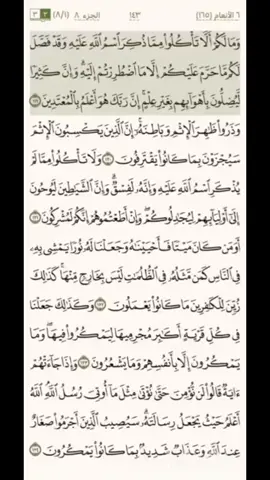 ٦ الأنعام (١٦٥) ١٤٣ الجزء ٨ (٨/١)
وَمَا لَكُمْ أَلَّا تَأْكُلُوا۟ مِمَّا ذُكِرَ ٱسْمُ ٱللَّهِ عَلَيْهِ وَقَدْ فَصَّلَ
لَكُم مَّا حَرَّمَ عَلَيْكُمْ إِلَّا مَا ٱضْطُرِرْتُمْ إِلَيْهِ ۗ وَإِنَّ كَثِيرًا
لَّيُضِلُّونَ بِأَهْوَآئِهِم بِغَيْرِ عِلْمٍ ۗ إِنَّ رَبَّكَ هُوَ أَعْلَمُ بِٱلْمُعْتَدِينَ ١١٩
وَذَرُوا۟ ظَٰهِرَ ٱلْإِثْمِ وَبَاطِنَهُۥٓ ۚ إِنَّ ٱلَّذِينَ يَكْسِبُونَ ٱلْإِثْمَ
سَيُجْزَوْنَ بِمَا كَانُوا۟ يَقْتَرِفُونَ ١٢٠ وَلَا تَأْكُلُوا۟ مِمَّا لَمْ
يُذْكَرِ ٱسْمُ ٱللَّهِ عَلَيْهِ وَإِنَّهُۥ لَفِسْقٌ ۗ وَإِنَّ ٱلشَّيَٰطِينَ لَيُوحُونَ
إِلَىٰٓ أَوْلِيَآئِهِمْ لِيُجَٰدِلُوكُمْ ۖ وَإِنْ أَطَعْتُمُوهُمْ إِنَّكُمْ لَمُشْرِكُونَ ١٢١
أَوَمَن كَانَ مَيْتًا فَأَحْيَيْنَٰهُ وَجَعَلْنَا لَهُۥ نُورًا يَمْشِى بِهِۦ
فِى ٱلنَّاسِ كَمَن مَّثَلُهُۥ فِى ٱلظُّلُمَٰتِ لَيْسَ بِخَارِجٍ مِّنْهَا ۚ كَذَٰلِكَ
زُيِّنَ لِلْكَٰفِرِينَ مَا كَانُوا۟ يَعْمَلُونَ ١٢٢ وَكَذَٰلِكَ جَعَلْنَا
فِى كُلِّ قَرْيَةٍ أَكَٰبِرَ مُجْرِمِيهَا لِيَمْكُرُوا۟ فِيهَا ۖ وَمَا
يَمْكُرُونَ إِلَّا بِأَنفُسِهِمْ وَمَا يَشْعُرُونَ ١٢٣ وَإِذَا جَآءَتْهُمْ
ءَايَةٌ قَالُوا۟ لَن نُّؤْمِنَ حَتَّىٰ نُؤْتَىٰ مِثْلَ مَآ أُوتِىَ رُسُلُ ٱللَّهِ ۘ ٱللَّهُ
أَعْلَمُ حَيْثُ يَجْعَلُ رِسَالَتَهُۥ ۗ سَيُصِيبُ ٱلَّذِينَ أَجْرَمُوا۟ صَغَارٌ
عِندَ ٱللَّهِ وَعَذَابٌ شَدِيدٌۢ بِمَا كَانُوا۟ يَمْكُرُونَ ١٢٤